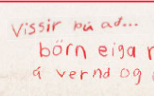 Vissir þú að...
börn eiga r
á vernd og